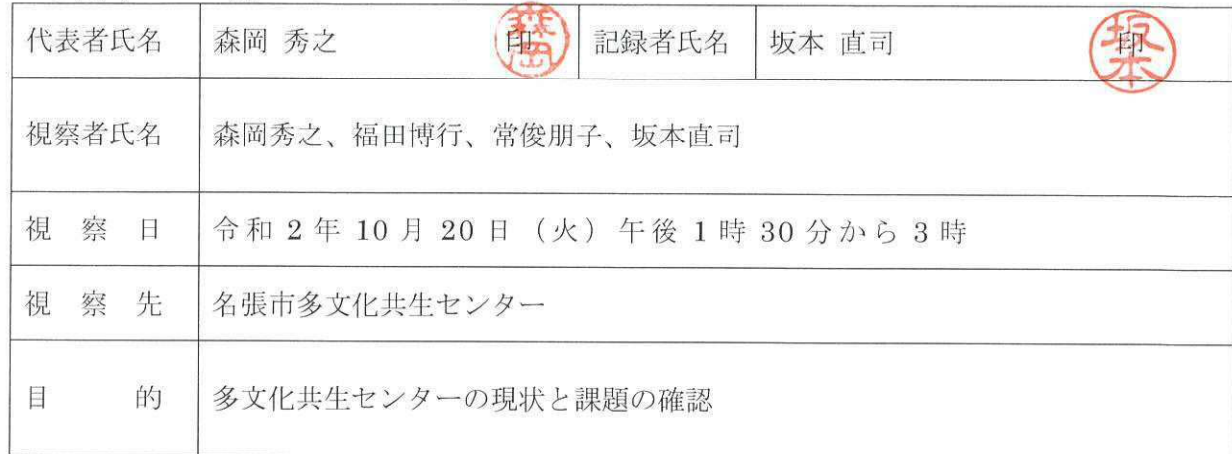 代表者氏名 森岡 秀之 印 森岡 記録者氏名 坂本 直司 印 坂本
視察者氏名 森岡秀之、福田博行、常俊朋子、坂本直司
視 察 日 令和 2 年 10 月 20 日（火）午後 1 時 30 分から 3 時
視 察 先 名張市多文化共生センター
目 的 多文化共生センターの現状と課題の確認